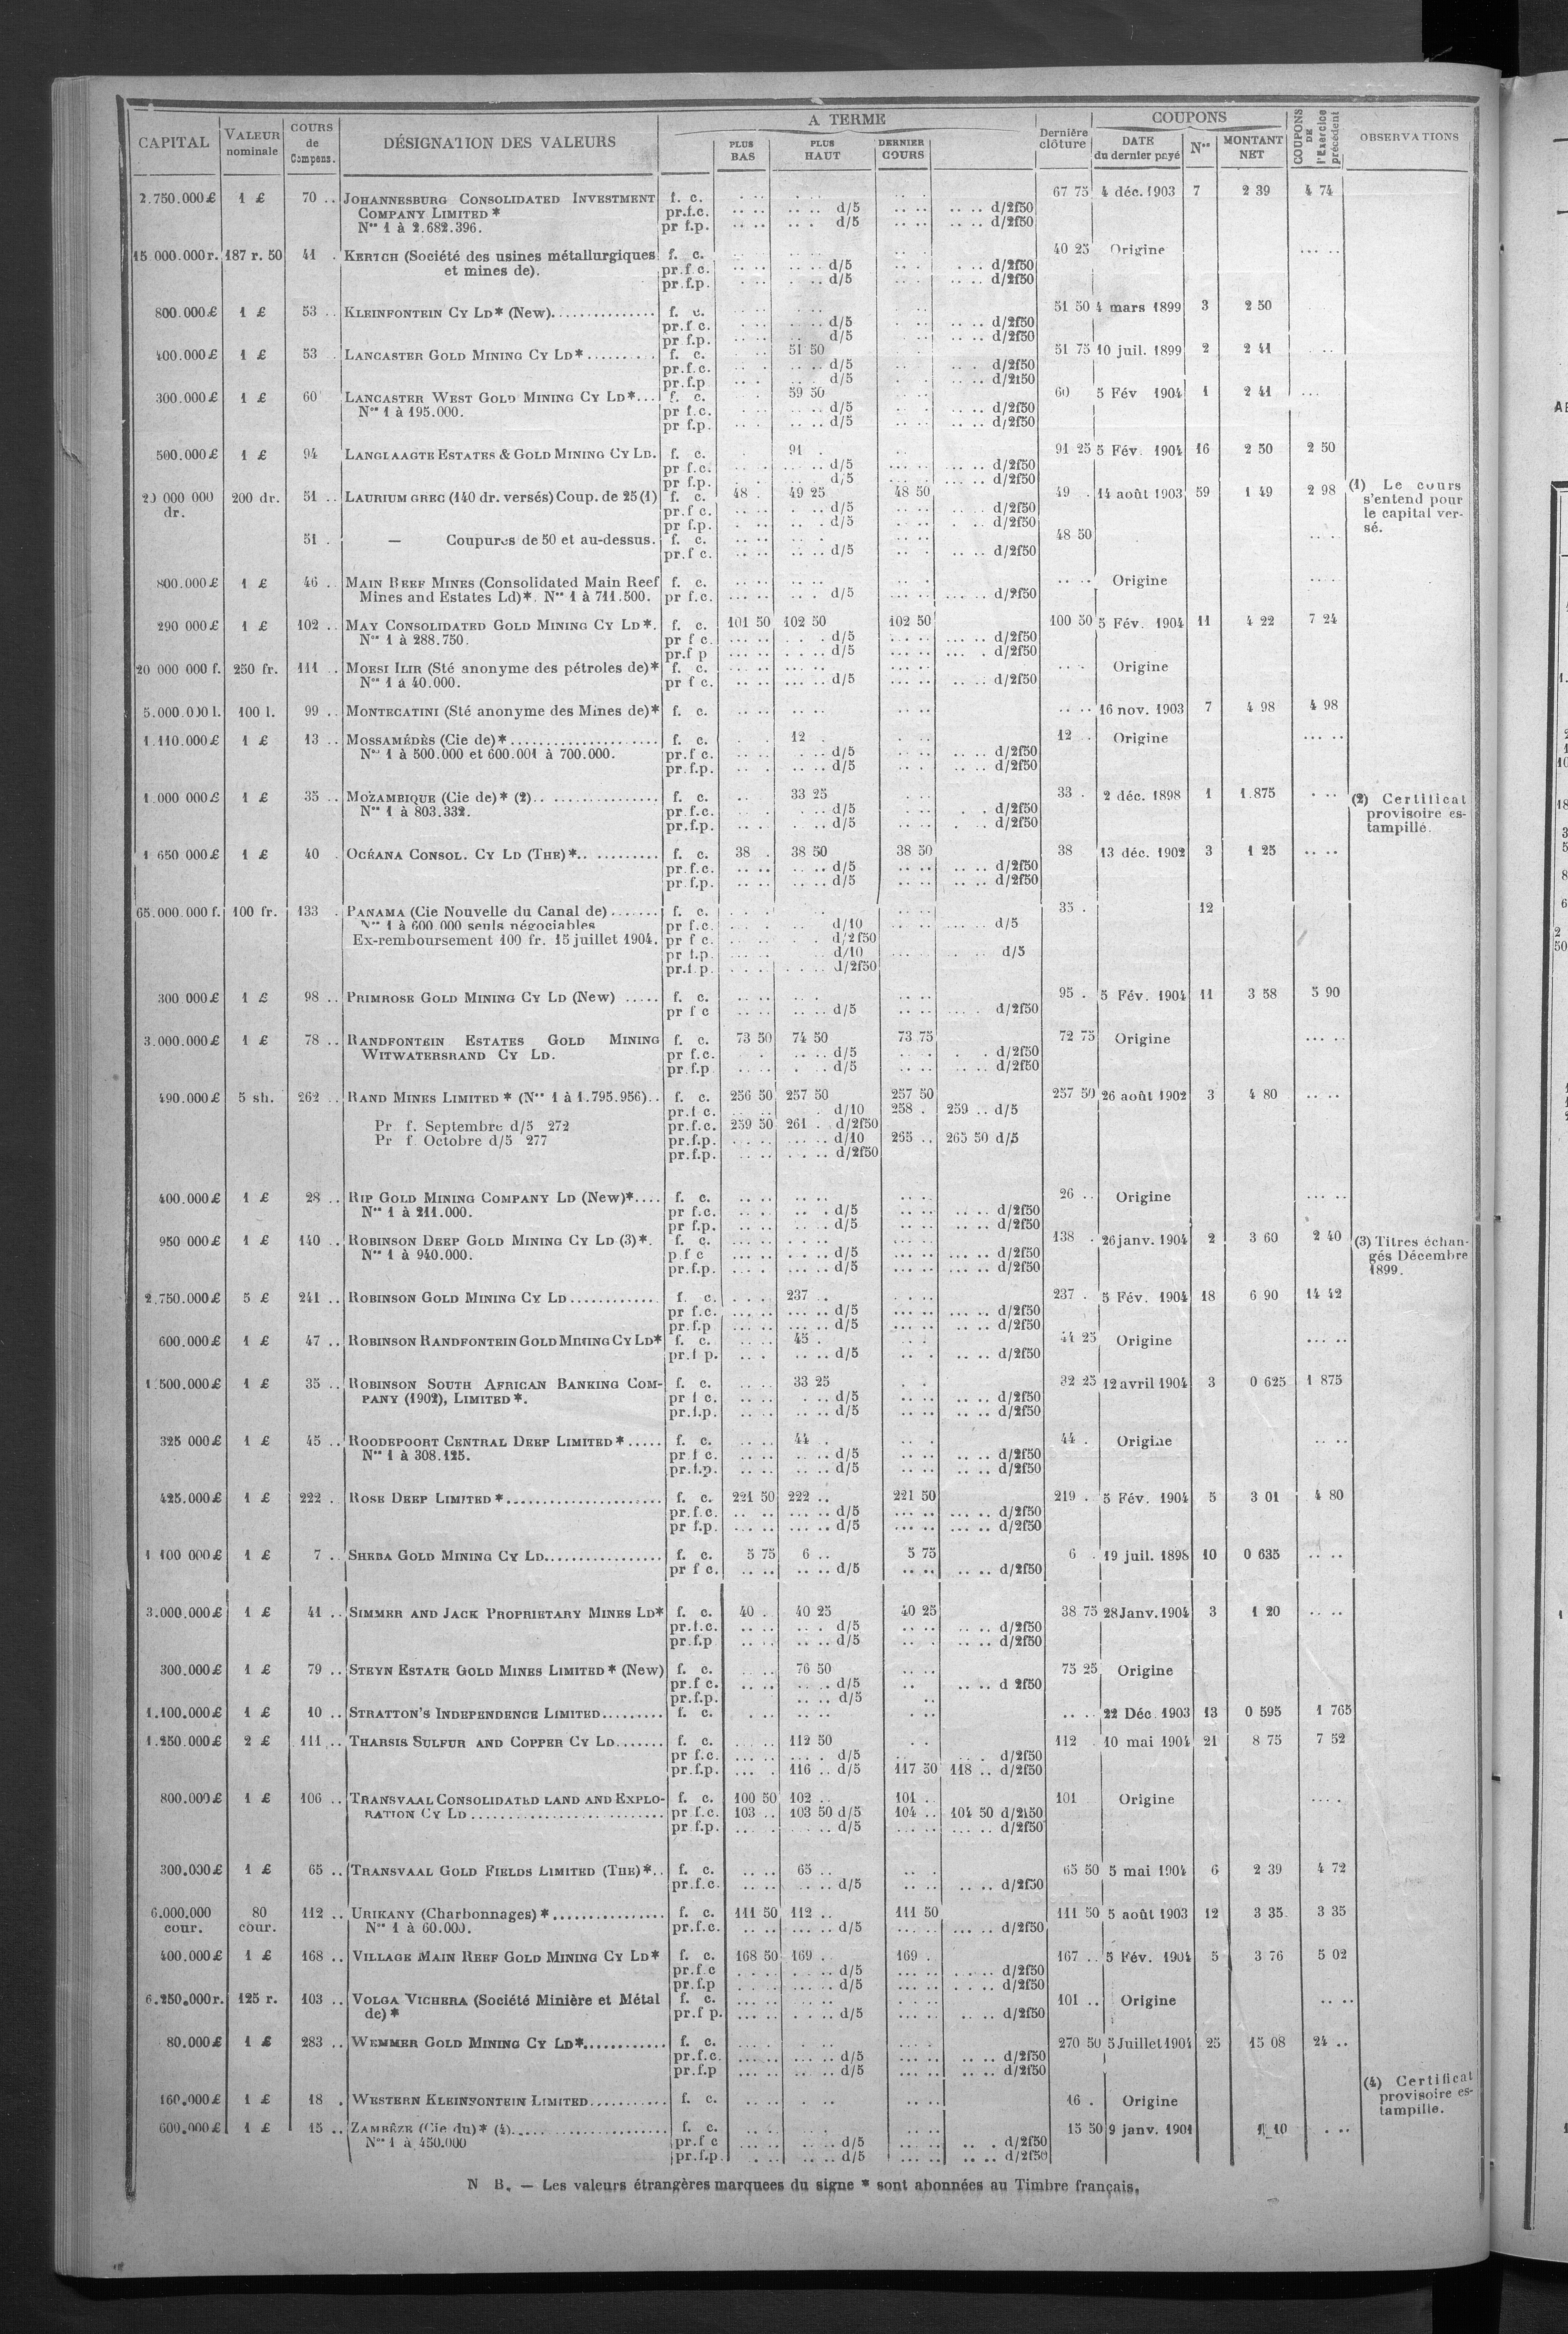 CAPITAL VALEUR nominale COURS de Compens. DÉSIGNATION DES VALEURS A TERME Dernière clôture COUPONS COUPONS DE l'Exercice précédent OBSERVATIONS
PLUS BAS PLUS HAUT DERNIER COURS DATE du dernier payé Nos MONTANT NET
2.750.000£ 1 £ 70 .. JOHANNESBURG CONSOLIDATED INVESTMENT f. c. 67 75 4 déc. 1903 7 2 39 4 74
COMPANY LIMITED * pr.f.c. d/5 d/2f50
Nos 1 à 2.682.396. pr f.p. d/5 d/2f50
15 000.000r. 187 r. 50 41 . KERTCH (Société des usines métallurgiques f. c. 40 25 Origine
et mines de). pr.f c. d/5 d/2f50
pr.f.p. d/5 d/2f50
800.000£ 1 £ 53 .. KLEINFONTEIN CY LD* (New). f. c. 51 50 4 mars 1899 3 2 50
pr.f c. d/5 d/2f50
pr f.p. d/5 d/2f50
400.000£ 1 £ 53 .. LANCASTER GOLD MINING CY LD* f. c. 51 50 51 75 10 juil. 1899 2 2 41
pr.f.c. d/5 d/2f50
pr.f.p d/5 d/2f50
300.000£ 1 £ 60 LANCASTER WEST GOLD MINING CY LD* f. c. 59 50 60 5 Fév 1904 1 2 41
Nos 1 à 195.000. pr f.c. d/5 d/2f50
pr f.p. d/5 d/2f50
500.000£ 1 £ 94 LANGLAAGTE ESTATES & GOLD MINING CY LD. f. c. 91 . 91 25 5 Fév. 1904 16 2 50 2 50
pr f.c. d/5 d/2f50
pr f.p. d/5 d/2f50
20 000 000 dr. 200 dr. 51 .. LAURIUM GREC (140 dr. versés) Coup. de 25 (1) f. c. 48 . 49 25 48 50 49 . 14 août 1903 59 1 49 2 98 (1) Le cours s'entend pour le capital versé.
pr.f c. d/5 d/2f50
pr f.p. d/5 d/2f50
51 . — Coupures de 50 et au-dessus. f. c. 48 50
pr.f c. d/5 d/2f50
800.000£ 1 £ 46 .. MAIN REEF MINES (Consolidated Main Reef f. c. Origine
Mines and Estates Ld)*. Nos 1 à 711.500. pr f.c. d/5 d/2f50
290 000£ 1 £ 102 .. MAY CONSOLIDATED GOLD MINING CY LD*. f. c. 101 50 102 50 102 50 100 50 5 Fév. 1904 11 4 22 7 24
Nos 1 à 288.750. pr f c. d/5 d/2f50
pr.f p d/5 d/2f50
20 000 000 f. 250 fr. 111 .. MOESI ILIR (Sté anonyme des pétroles de)* f. c. Origine
Nos 1 à 40.000. pr f c. d/5 d/2f50
5.000.000 l. 100 l. 99 .. MONTECATINI (Sté anonyme des Mines de)* f. c. 16 nov. 1903 7 4 98 4 98
1.110.000£ 1 £ 13 .. MOSSAMÉDÈS (Cie de)* f. c. 12 . 12 . Origine
Nos 1 à 500.000 et 600.001 à 700.000. pr.f c. d/5 d/2f50
pr.f.p. d/5 d/2f50
1.000 000£ 1 £ 35 .. MOZAMBIQUE (Cie de)* (2) f. c. 33 25 33 . 2 déc. 1898 1 1.875 (2) Certificat provisoire estampillé.
Nos 1 à 803.332. pr f.c. d/5 d/2f50
pr.f.p. d/5 d/2f50
1 650 000£ 1 £ 40 . OCÉANA CONSOL. CY LD (THE)* f. c. 38 . 38 50 38 50 38 13 déc. 1902 3 1 25
pr.f.c. d/5 d/2f50
pr.f.p. d/5 d/2f50
65.000.000 f. 100 fr. 133 . PANAMA (Cie Nouvelle du Canal de) f. c. 35 . 12
Nos 1 à 600.000 seuls négociables pr f.c. d/10 d/5
Ex-remboursement 100 fr. 15 juillet 1904. pr f c. d/2f50
pr f.p. d/10 d/5
pr.f.p. d/2f50
300 000£ 1 £ 98 .. PRIMROSE GOLD MINING CY LD (New) f. c. 95 . 5 Fév. 1904 11 3 58 5 90
pr f c d/5 d/2f50
3.000.000£ 1 £ 78 .. RANDFONTEIN ESTATES GOLD MINING f. c. 73 50 74 50 73 75 72 75 Origine
WITWATERSRAND CY LD. pr f.c. d/5 d/2f50
pr.f.p d/5 d/2f50
490.000£ 5 sh. 262 .. RAND MINES LIMITED * (Nos 1 à 1.795.956) f. c. 256 50 257 50 257 50 257 50 26 août 1902 3 4 80
pr.f c. d/10 258 . 259 .. d/5
Pr f. Septembre d/5 272 pr.f.c. 259 50 261 . d/2f50
Pr f. Octobre d/5 277 pr.f.p. d/10 265 .. 265 50 d/5
pr.f.p. d/2f50
400.000£ 1 £ 28 .. RIP GOLD MINING COMPANY LD (New)* f. c. 26 .. Origine
Nos 1 à 211.000. pr f.c. d/5 d/2f50
pr f.p. d/5 d/2f50
950 000£ 1 £ 140 .. ROBINSON DEEP GOLD MINING CY LD (3)*. f. c. 138 . 26 janv. 1904 2 3 60 2 40 (3) Titres échangés Décembre 1899.
Nos 1 à 940.000. p f c d/5 d/2f50
pr.f.p. d/5 d/2f50
2.750.000£ 5 £ 241 .. ROBINSON GOLD MINING CY LD f. c. 237 .. 237 . 5 Fév. 1904 18 6 90 14 42
pr f.c. d/5 d/2f50
pr.f.p d/5 d/2f50
600.000£ 1 £ 47 .. ROBINSON RANDFONTEIN GOLD MINING CY LD* f. c. 45 . 44 25 Origine
pr.f p. d/5 d/2f50
1.500.000£ 1 £ 35 .. ROBINSON SOUTH AFRICAN BANKING COM- f. c. 33 25 32 25 12 avril 1904 3 0 625 1 875
PANY (1902), LIMITED *. pr f c. d/5 d/2f50
pr.f.p. d/5 d/2f50
325 000£ 1 £ 45 .. ROODEPOORT CENTRAL DEEP LIMITED * f. c. 44 . 44 . Origine
Nos 1 à 308.125. pr f c. d/5 d/2f50
pr.f.p. d/5 d/2f50
425.000£ 1 £ 222 . ROSE DEEP LIMITED * f. c. 221 50 222 .. 221 50 219 . 5 Fév. 1904 5 3 01 4 80
pr.f.c. d/5 d/2f50
pr f.p. d/5 d/2f50
1 100 000£ 1 £ 7 .. SHEBA GOLD MINING CY LD f. c. 5 75 6 .. 5 75 6 . 19 juil. 1898 10 0 635
pr f c. d/5 d/2f50
3.000.000£ 1 £ 41 .. SIMMER AND JACK PROPRIETARY MINES LD* f. c. 40 . 40 25 40 25 38 75 28 Janv. 1904 3 1 20
pr.f.c. d/5 d/2f50
pr.f.p d/5 d/2f50
300.000£ 1 £ 79 .. STEYN ESTATE GOLD MINES LIMITED * (New) f. c. 76 50 75 25 Origine
pr.f c. d/5 d 2f50
pr.f.p. d/5
1.100.000£ 1 £ 10 .. STRATTON'S INDEPENDENCE LIMITED f. c. 22 Déc. 1903 13 0 595 1 765
1.250.000£ 2 £ 111 .. THARSIS SULFUR AND COPPER CY LD f. c. 112 50 112 . 10 mai 1904 21 8 75 7 52
pr f.c. d/5 d/2f50
pr.f.p. 116 .. d/5 117 50 118 .. d/2f50
800.000£ 1 £ 106 .. TRANSVAAL CONSOLIDATED LAND AND EXPLO- f. c. 100 50 102 .. 101 .. 101 Origine
RATION CY LD pr f.c. 103 .. 103 50 d/5 104 .. 104 50 d/2f50
pr f.p. d/5 d/2f50
300.000£ 1 £ 65 .. TRANSVAAL GOLD FIELDS LIMITED (THE)* f. c. 65 .. 65 50 5 mai 1904 6 2 39 4 72
pr.f.c. d/5 d/2f50
6.000.000 cour. 80 cour. 112 .. URIKANY (Charbonnages) * f. c. 111 50 112 .. 111 50 111 50 5 août 1903 12 3 35 3 35
Nos 1 à 60.000. pr.f.c. d/5 d/2f50
400.000£ 1 £ 168 .. VILLAGE MAIN REEF GOLD MINING CY LD* f. c. 168 50 169 .. 169 . 167 .. 5 Fév. 1904 5 3 76 5 02
pr.f.c d/5 d/2f50
pr.f.p d/5 d/2f50
6.250.000r. 125 r. 103 .. VOLGA VICHERA (Société Minière et Métal f. c. 101 .. Origine
de) * pr.f p. d/5 d/2f50
80.000£ 1 £ 283 .. WEMMER GOLD MINING CY LD* f. c. 270 50 5 Juillet 1904 25 15 08 24 ..
pr.f.c. d/5 d/2f50
pr.f.p d/5 d/2f50
160.000£ 1 £ 18 . WESTERN KLEINFONTEIN LIMITED f. c. 16 . Origine (4) Certificat provisoire estampille.
600.000£ 1 £ 15 .. ZAMBÈZE (Cie du)* (4) f. c. 15 50 9 janv. 1901 10
Nos 1 à 450.000 pr.f c d/5 d/2f50
pr.f.p. d/5 d/2f50
N B. — Les valeurs étrangères marquees du signe * sont abonnées au Timbre français.